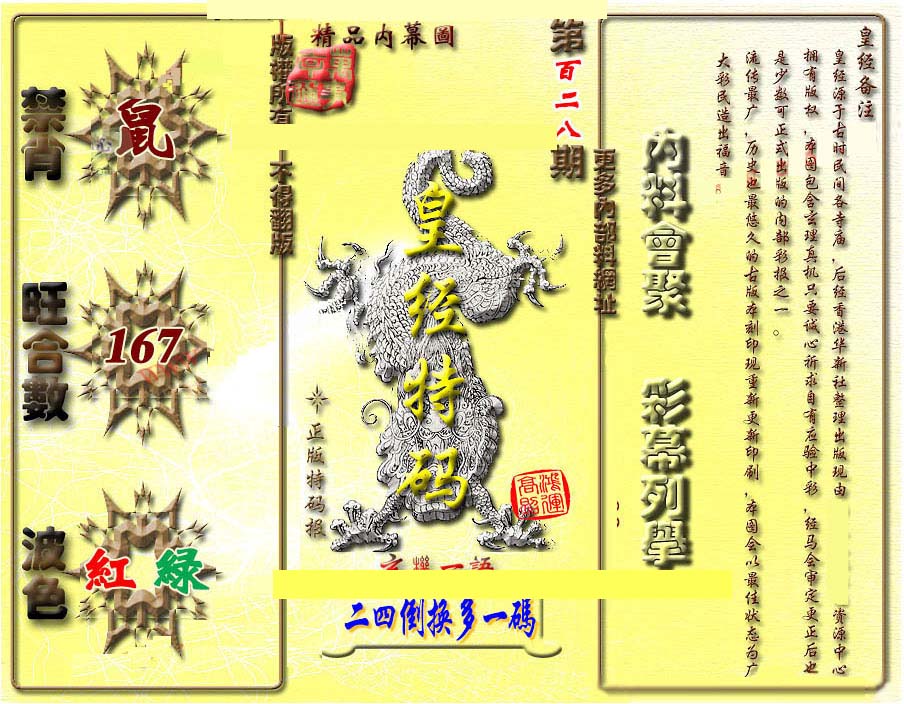 禁肖
鼠
旺合數
167
波色
紅 綠
版權所有
不得翻版
精品内幕圖
第百二八期
皇经特码
正版特码报
鴻運高照
玄機一語
二四倒換多一碼
更多内部料網址
内料會聚
彩幕列舉
皇经备注
皇经源于古时民间各寺庙,后经香港华新社整理出版现由 资源中心
拥有版权,本图包含玄理真机只要诚心祈求自有应验中彩,经马会审定更正后也
是少数可正式出版的内部彩报之一。
流传最广,历史也最悠久的古版本刻印现重新更新印刷,本图会以最佳状态为广
大彩民造出福音